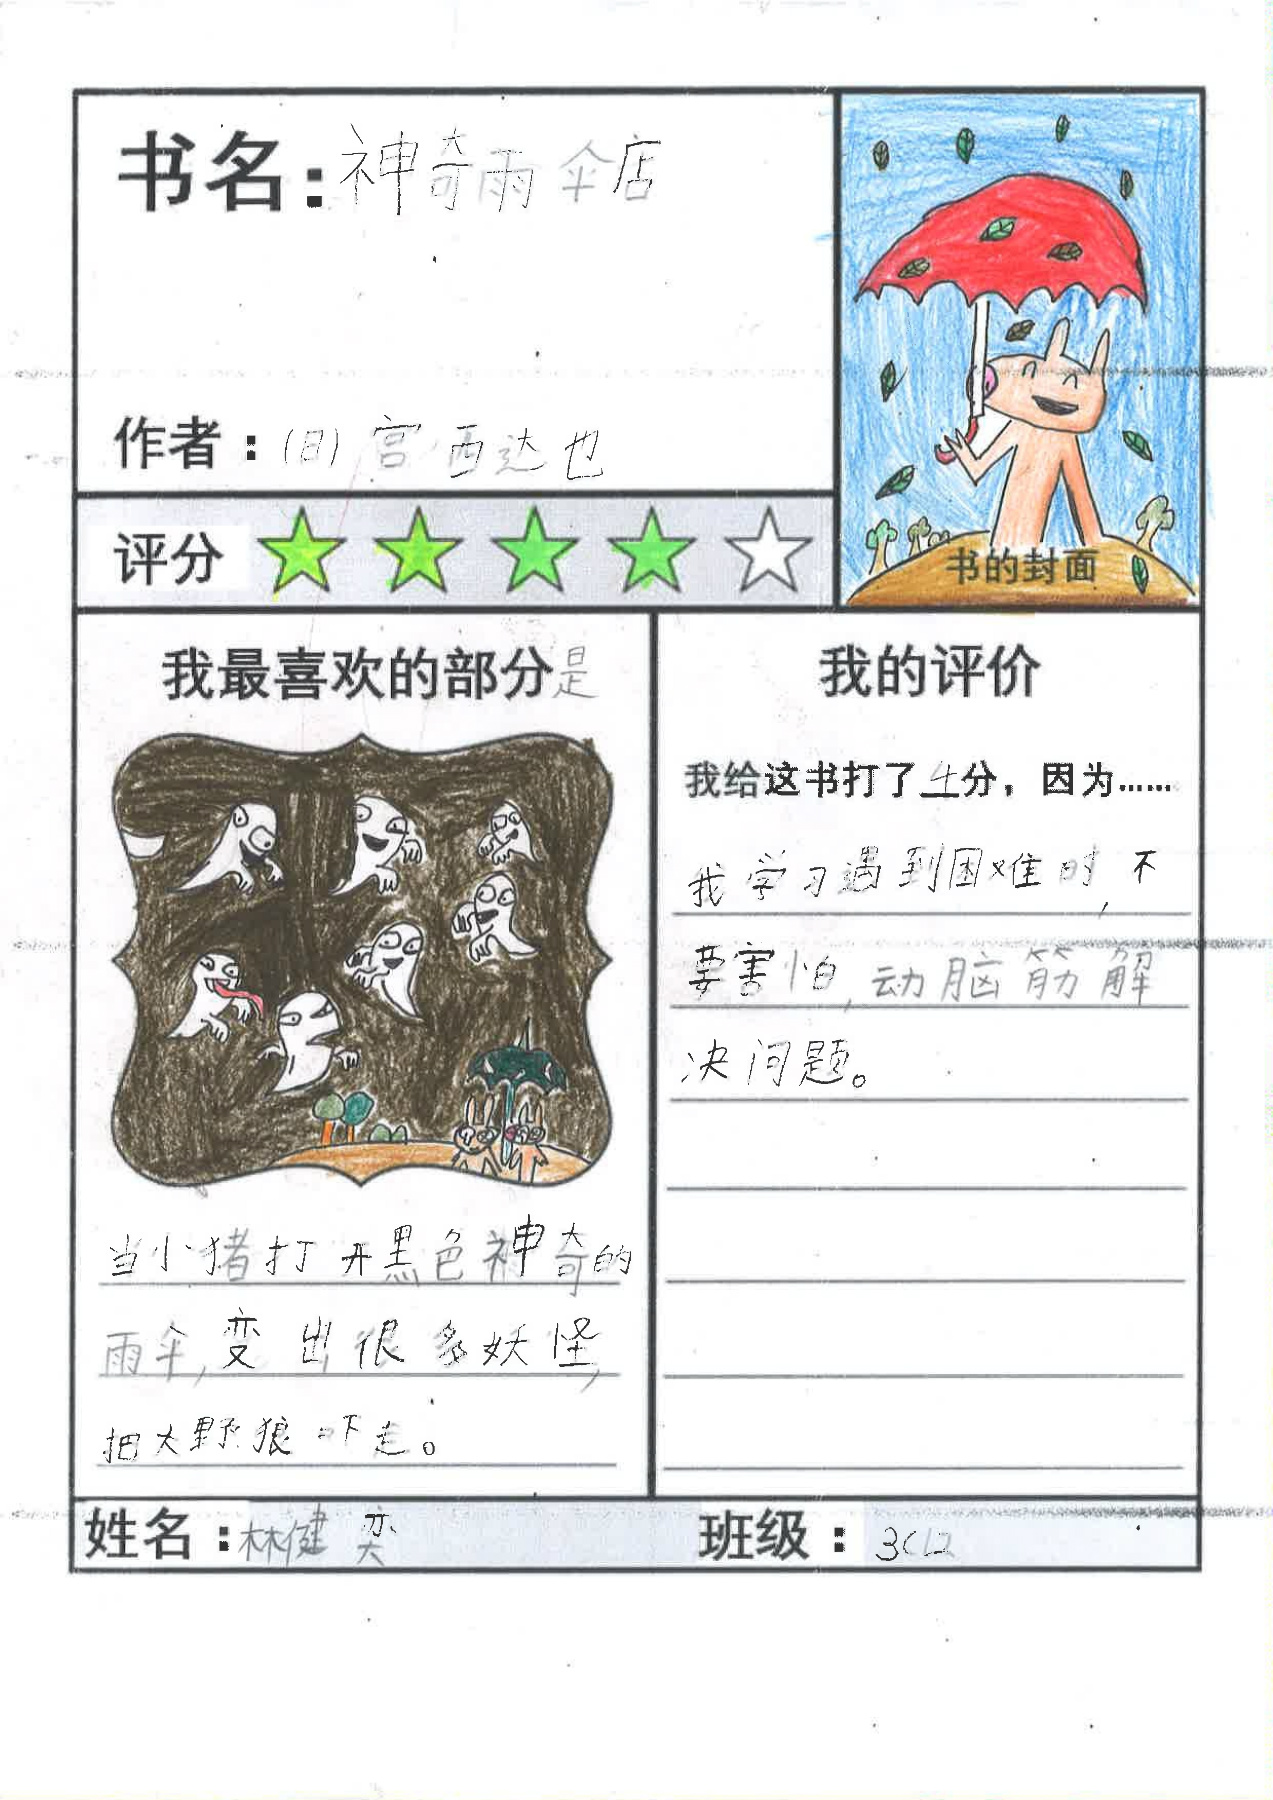 书名：神奇雨伞店
作者：(日)宫西达也
评分
书的封面
我最喜欢的部分是
当小猪打开黑色神奇的
雨伞,变出很多妖怪,
把大野狼吓走。
我的评价
我给这书打了4分，因为……
我学习遇到困难时,不
要害怕,动脑筋解
决问题。
姓名：林健奕
班级：